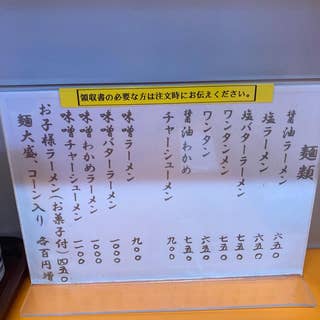 領収書の必要な方は注文時にお伝えください。
麺類
醤油ラーメン 六五〇
塩ラーメン 六五〇
塩バターラーメン 七五〇
ワンタンメン 七五〇
ワンタン 六五〇
醤油わかめ 七五〇
チャーシューメン 九〇〇
味噌ラーメン 九〇〇
味噌バターラーメン 一〇〇〇
味噌わかめラーメン 一〇〇〇
味噌チャーシューメン 一一〇〇
お子様ラーメン(お菓子付) 四五〇
麺大盛、コーン入り 各百円増